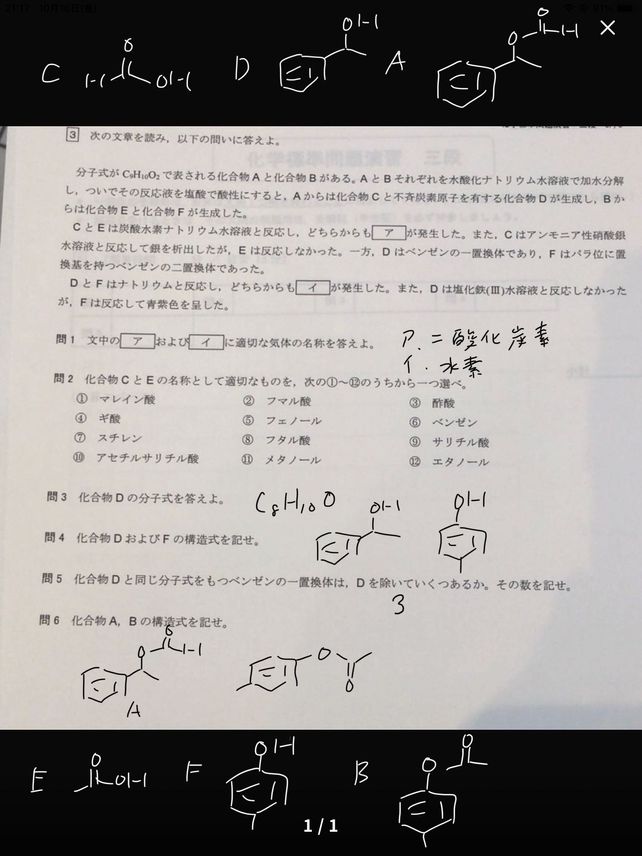 21:17 10月16日(金)
91%
C H O OH D OH A O O H ×
3 次の文章を読み，以下の問いに答えよ。
分子式が C9H10O2 で表される化合物 A と化合物 B がある。A と B それぞれを水酸化ナトリウム水溶液で加水分解
し，ついでその反応液を塩酸で酸性にすると，A からは化合物 C と不斉炭素原子を有する化合物 D が生成し，B か
らは化合物 E と化合物 F が生成した。
C と E は炭酸水素ナトリウム水溶液と反応し，どちらからも ア が発生した。また，C はアンモニア性硝酸銀
水溶液と反応して銀を析出したが，E は反応しなかった。一方，D はベンゼンの一置換体であり，F はパラ位に置
換基を持つベンゼンの二置換体であった。
D と F はナトリウムと反応し，どちらからも イ が発生した。また，D は塩化鉄(Ⅲ)水溶液と反応しなかった
が，F は反応して青紫色を呈した。
問1 文中の ア および イ に適切な気体の名称を答えよ。
ア. 二酸化炭素
イ. 水素
問2 化合物 C と E の名称として適切なものを，次の①～⑫のうちから一つ選べ。
① マレイン酸 ② フマル酸 ③ 酢酸
④ ギ酸 ⑤ フェノール ⑥ ベンゼン
⑦ スチレン ⑧ フタル酸 ⑨ サリチル酸
⑩ アセチルサリチル酸 ⑪ メタノール ⑫ エタノール
問3 化合物 D の分子式を答えよ。 C8H10O
問4 化合物 D および F の構造式を記せ。 OH OH
問5 化合物 D と同じ分子式をもつベンゼンの一置換体は，D を除いていくつあるか。その数を記せ。
3
問6 化合物 A，B の構造式を記せ。
O O H O O
A
E O OH F OH B O O
1 / 1